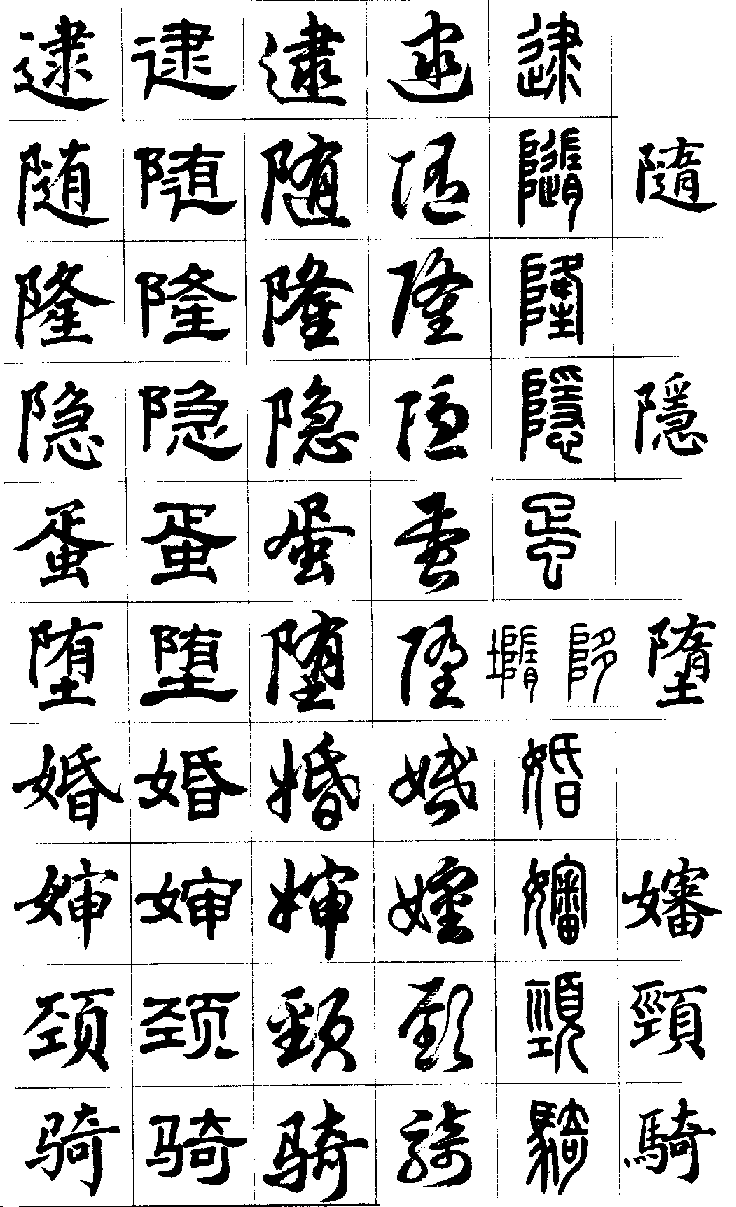 逮 逮 逮 逮 逮
随 随 随 随 隨 隨
隆 隆 隆 隆 隆
隐 隐 隐 隐 隱 隱
蛋 蛋 蛋 蛋 蛋
堕 堕 堕 堕 墮
婚 婚 婚 婚 婚
婶 婶 婶 嬸 嬸 嬸
颈 颈 頸 頸 頸 頸
骑 骑 骑 騎 騎 騎